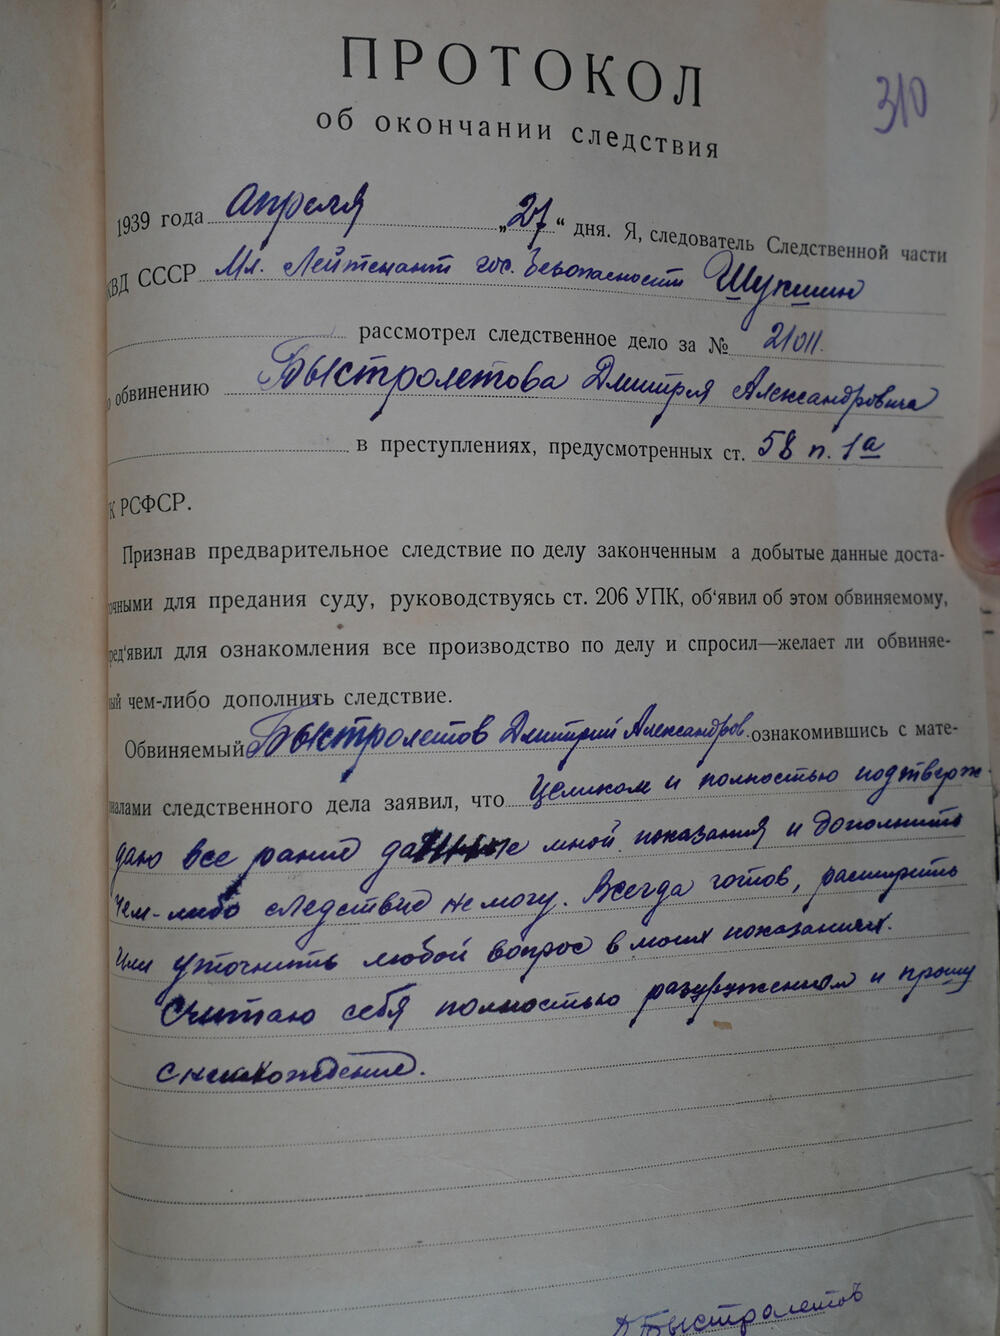 310
ПРОТОКОЛ
об окончании следствия
1939 года апреля „27“ дня. Я, следователь Следственной части
КВД СССР Мл. Лейтенант гос. безопасности Шукшин
рассмотрел следственное дело за № 21011.
о обвинению Быстролетова Дмитрия Александровича
в преступлениях, предусмотренных ст. 58 п. 1а
К РСФСР.
Признав предварительное следствие по делу законченным а добытые данные доста-
очными для предания суду, руководствуясь ст. 206 УПК, об'явил об этом обвиняемому,
ред'явил для ознакомления все производство по делу и спросил—желает ли обвиняе-
ый чем-либо дополнить следствие.
Обвиняемый Быстролетов Дмитрий Александров. ознакомившись с мате-
иалами следственного дела заявил, что целиком и полностью подтверж-
даю все ранее данные мной показания и дополнить
чем-либо следствие не могу. Всегда готов, расширить
или уточнить любой вопрос в моих показаниях.
Считаю себя полностью разоруженном и прошу
снисхождения.
Д Быстролетов